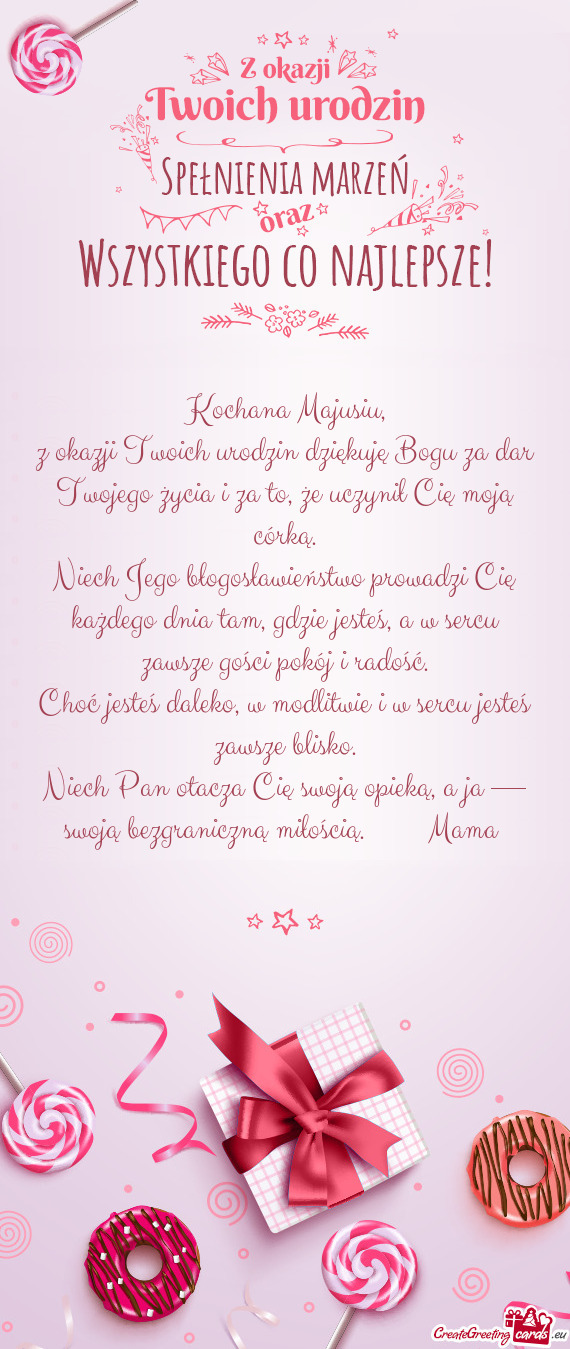 Z okazji
Twoich urodzin
Spełnienia marzeń
oraz
Wszystkiego co najlepsze!
Kochana Majusiu,
z okazji Twoich urodzin dziękuję Bogu za dar
Twojego życia i za to, że uczynił Cię moją
córką.
Niech Jego błogosławieństwo prowadzi Cię
każdego dnia tam, gdzie jesteś, a w sercu
zawsze gości pokój i radość.
Choć jesteś daleko, w modlitwie i w sercu jesteś
zawsze blisko.
Niech Pan otacza Cię swoją opieką, a ja —
swoją bezgraniczną miłością. Mama
CreateGreetingcards.eu